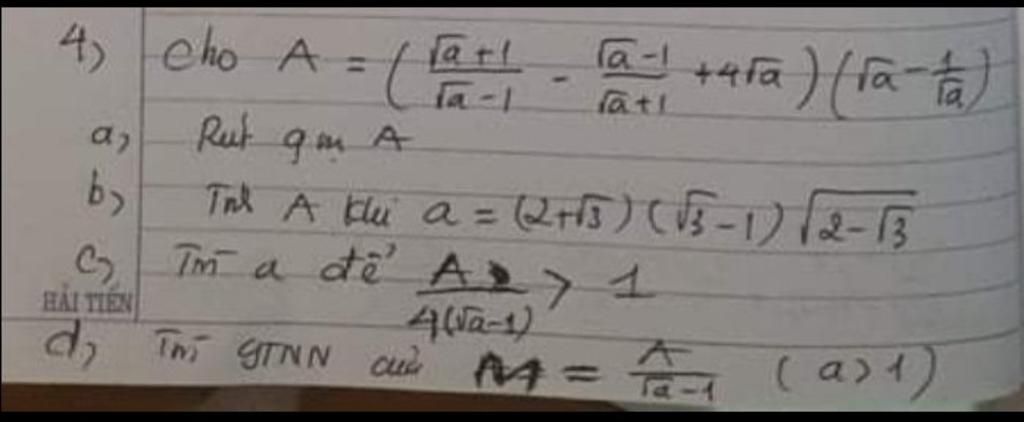 4) Cho A = ( (√a+1)/(√a-1) - (√a-1)/(√a+1) + 4√a ) ( √a - 1/√a )
a) Rút gọn A
b) Tính A khi a = (2+√3) (√3-1) √(2-√3)
c) Tìm a để A/(4(√a-1)) > 1
HẢI TIẾN
d) Tìm GTNN của M = A/(√a-1) (a>1)